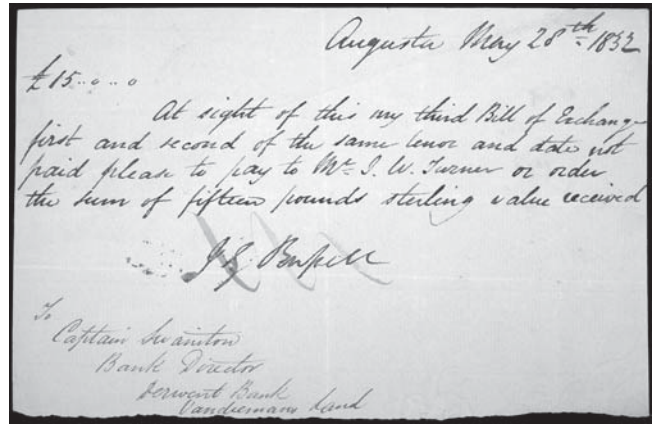 Augusta May 28th 1832
£15..0..0
At sight of this my third Bill of Exchange
first and second of the same tenor and date not
paid please to pay to Mr. J. W. Turner or order
the sum of fifteen pounds sterling value received
J G Bussell
To
Captain Swanston
Bank Director
Derwent Bank
Vandiemans Land